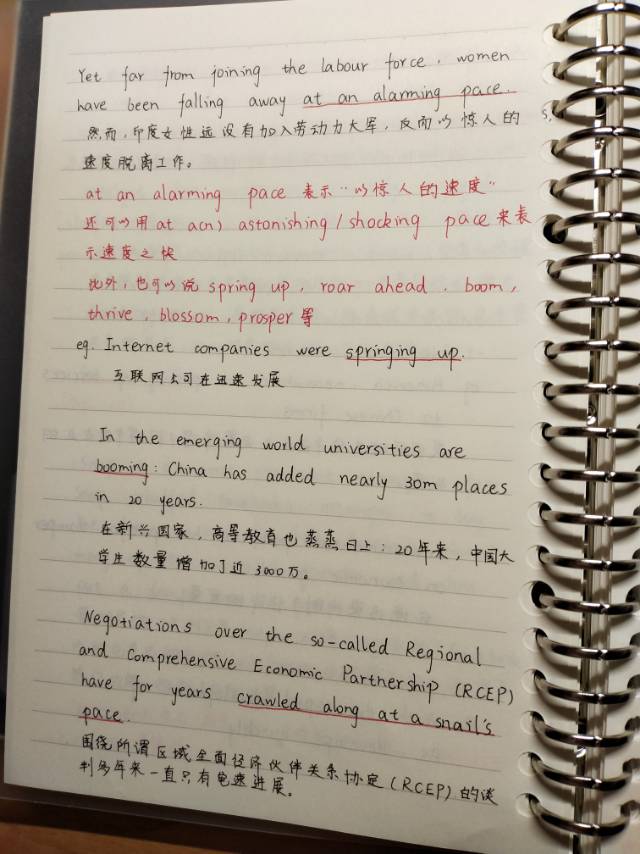 Yet far from joining the labour force, women
have been falling away at an alarming pace.
然而,印度女性远没有加入劳动力大军,反而以惊人的
速度脱离工作。
at an alarming pace 表示“以惊人的速度”
还可以用 at a(n) astonishing / shocking pace 来表
示速度之快
此外,也可以说 spring up, roar ahead, boom,
thrive, blossom, prosper 等
eg. Internet companies were springing up.
互联网公司在迅速发展
In the emerging world universities are
booming: China has added nearly 30m places
in 20 years.
在新兴国家,高等教育也蒸蒸日上:20年来,中国大
学生数量增加了近3000万。
Negotiations over the so-called Regional
and Comprehensive Economic Partnership (RCEP)
have for years crawled along at a snail's
pace.
围绕所谓区域全面经济伙伴关系协定(RCEP)的谈
判多年来一直只有龟速进展。